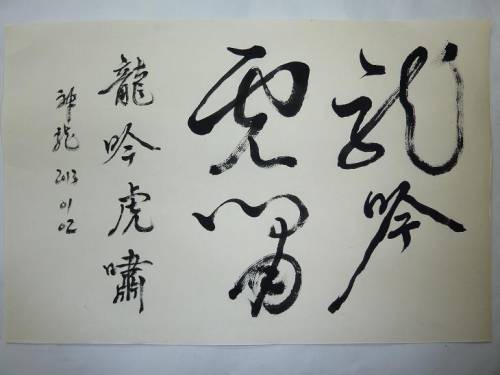 龍吟
虎嘯
龍吟虎嘯
神龍 2013 01 02